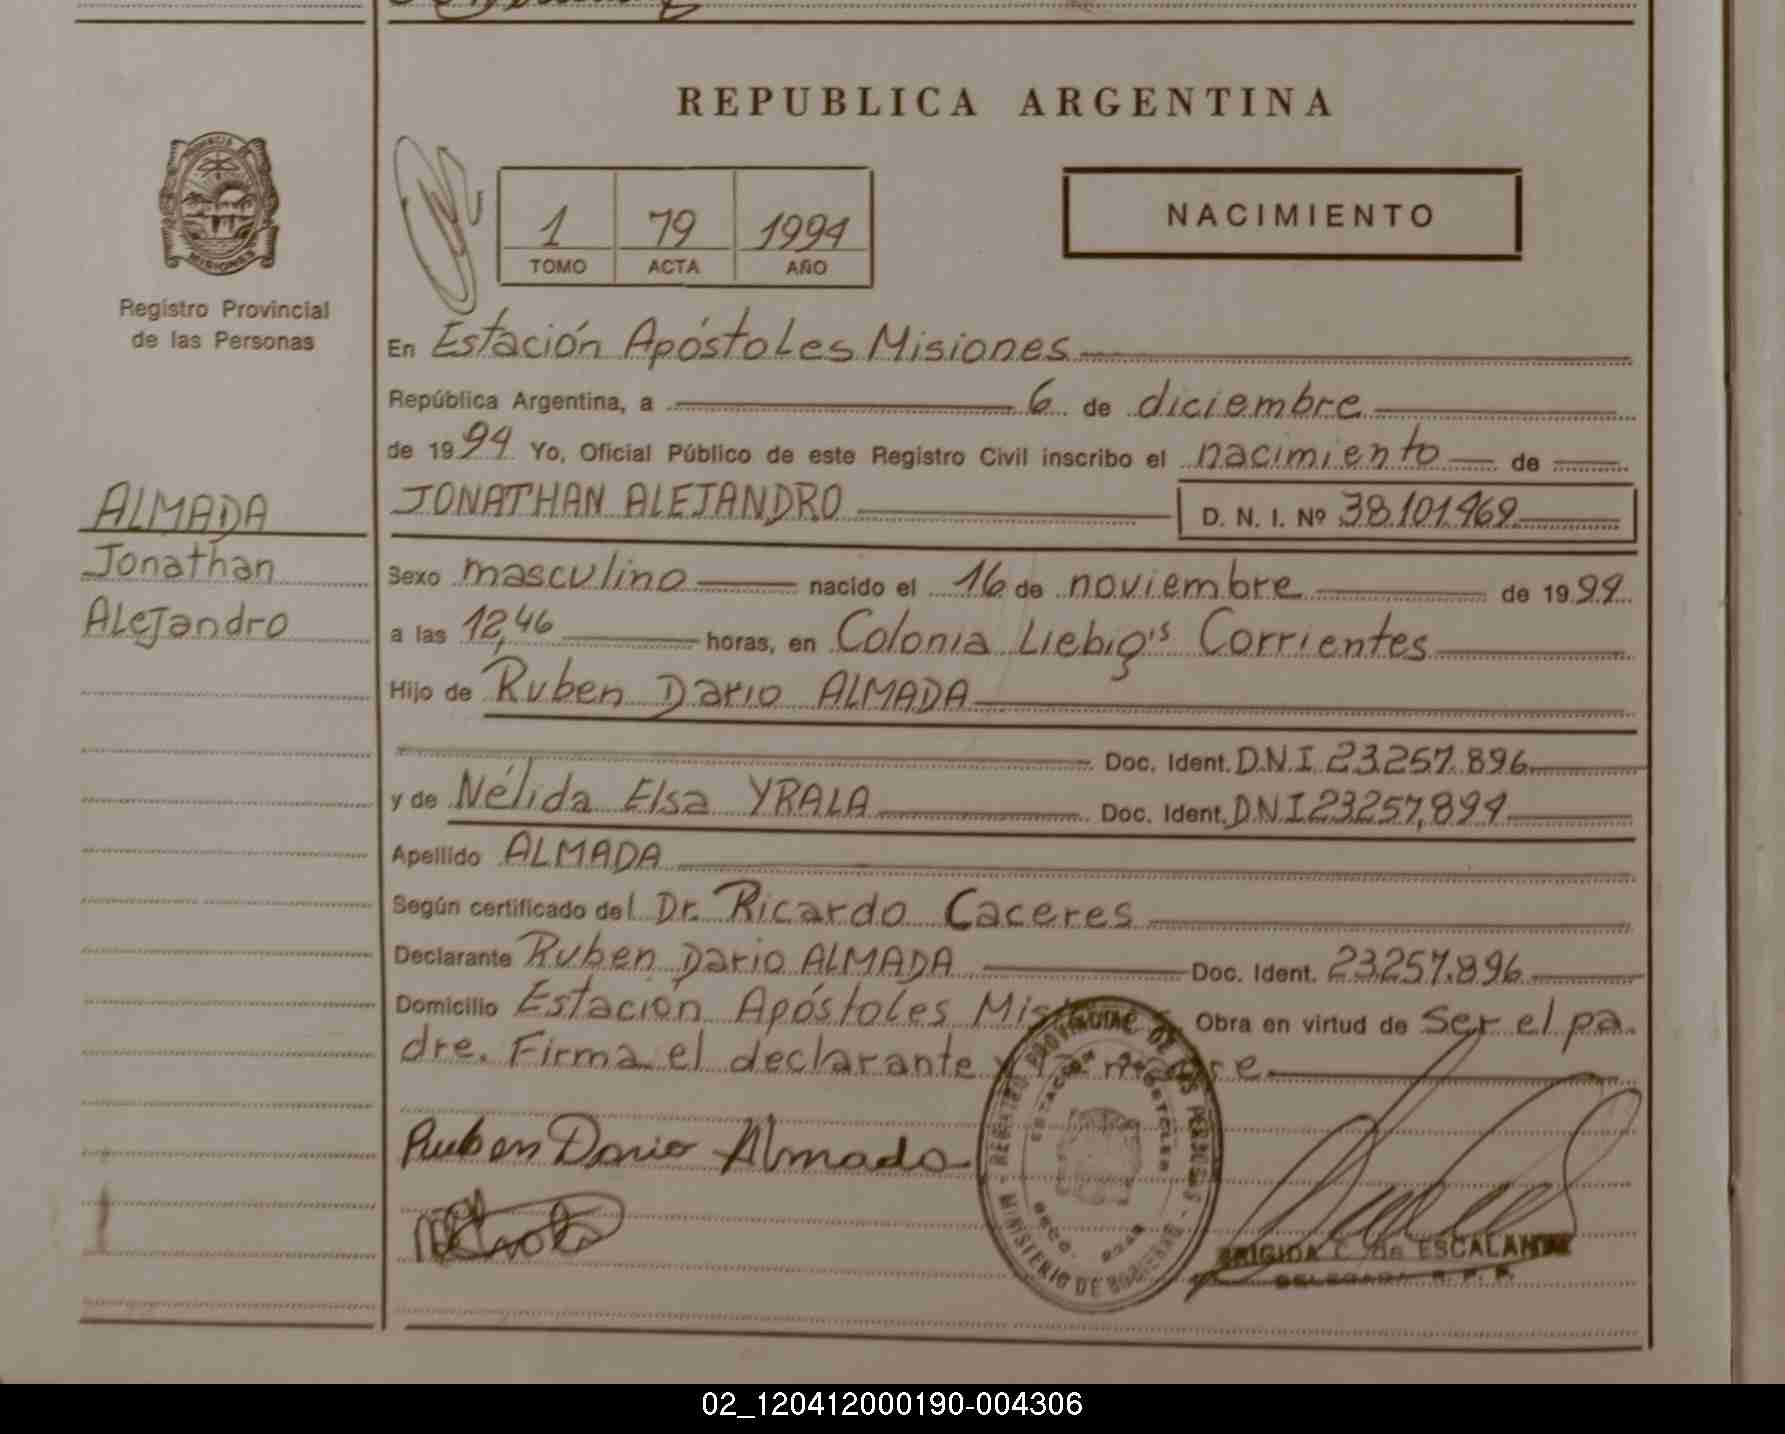 REPUBLICA ARGENTINA
PROVINCIA DE
MISIONES
Registro Provincial
de las Personas
1 79 1994
TOMO ACTA AÑO
NACIMIENTO
En Estación Apóstoles Misiones
República Argentina, a 6 de diciembre
de 1994 Yo, Oficial Público de este Registro Civil inscribo el nacimiento de
ALMADA
Jonathan
Alejandro
JONATHAN ALEJANDRO D. N. I. Nº 38.101.469
Sexo masculino nacido el 16 de noviembre de 1994
a las 12,46 horas, en Colonia Liebig's Corrientes
Hijo de Ruben Dario ALMADA
Doc. Ident. D.N.I 23.257.896
y de Nélida Elsa YRALA Doc. Ident. D.N.I 23257,894
Apellido ALMADA
Según certificado del Dr. Ricardo Caceres
Declarante Ruben Dario ALMADA Doc. Ident. 23.257.896
Domicilio Estación Apóstoles Misiones Obra en virtud de Ser el pa
dre. Firma el declarante y la madre
Ruben Dario Almada
REGISTRO PROVINCIAL DE LAS PERSONAS - MINISTERIO DE GOBIERNO -
ESTACION APOSTOLES
BRIGIDA C. de ESCALANTE
DELEGADA R. P. P.
02_120412000190-004306